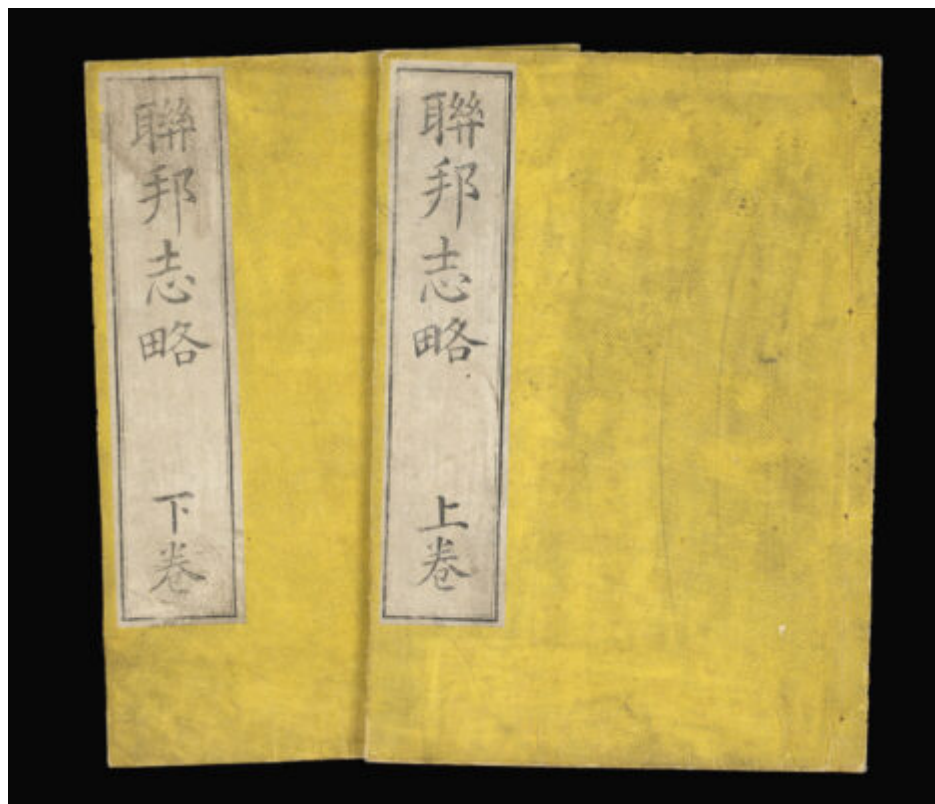 聯邦志略
上卷
聯邦志略
下卷